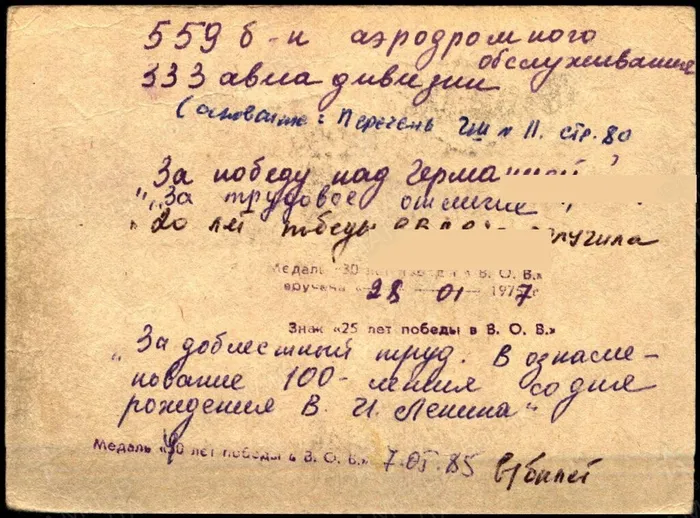 559 б-н аэродромного
обслуживания
333 авиа дивизии
(основание: Перечень ГШ № 11. стр. 80
За победу над Германией
"За трудовое отличие"
"20 лет победы вручила
Медаль «30 лет победы в В. О. В.»
вручена «28 01 1977 г
Знак «25 лет победы в В. О. В.»
„За доблестный труд. В ознаме-
нование 100-летия со дня
рождения В. И. Ленина“
Медаль «40 лет победы в В. О. В.» 7.05.85 в/билет